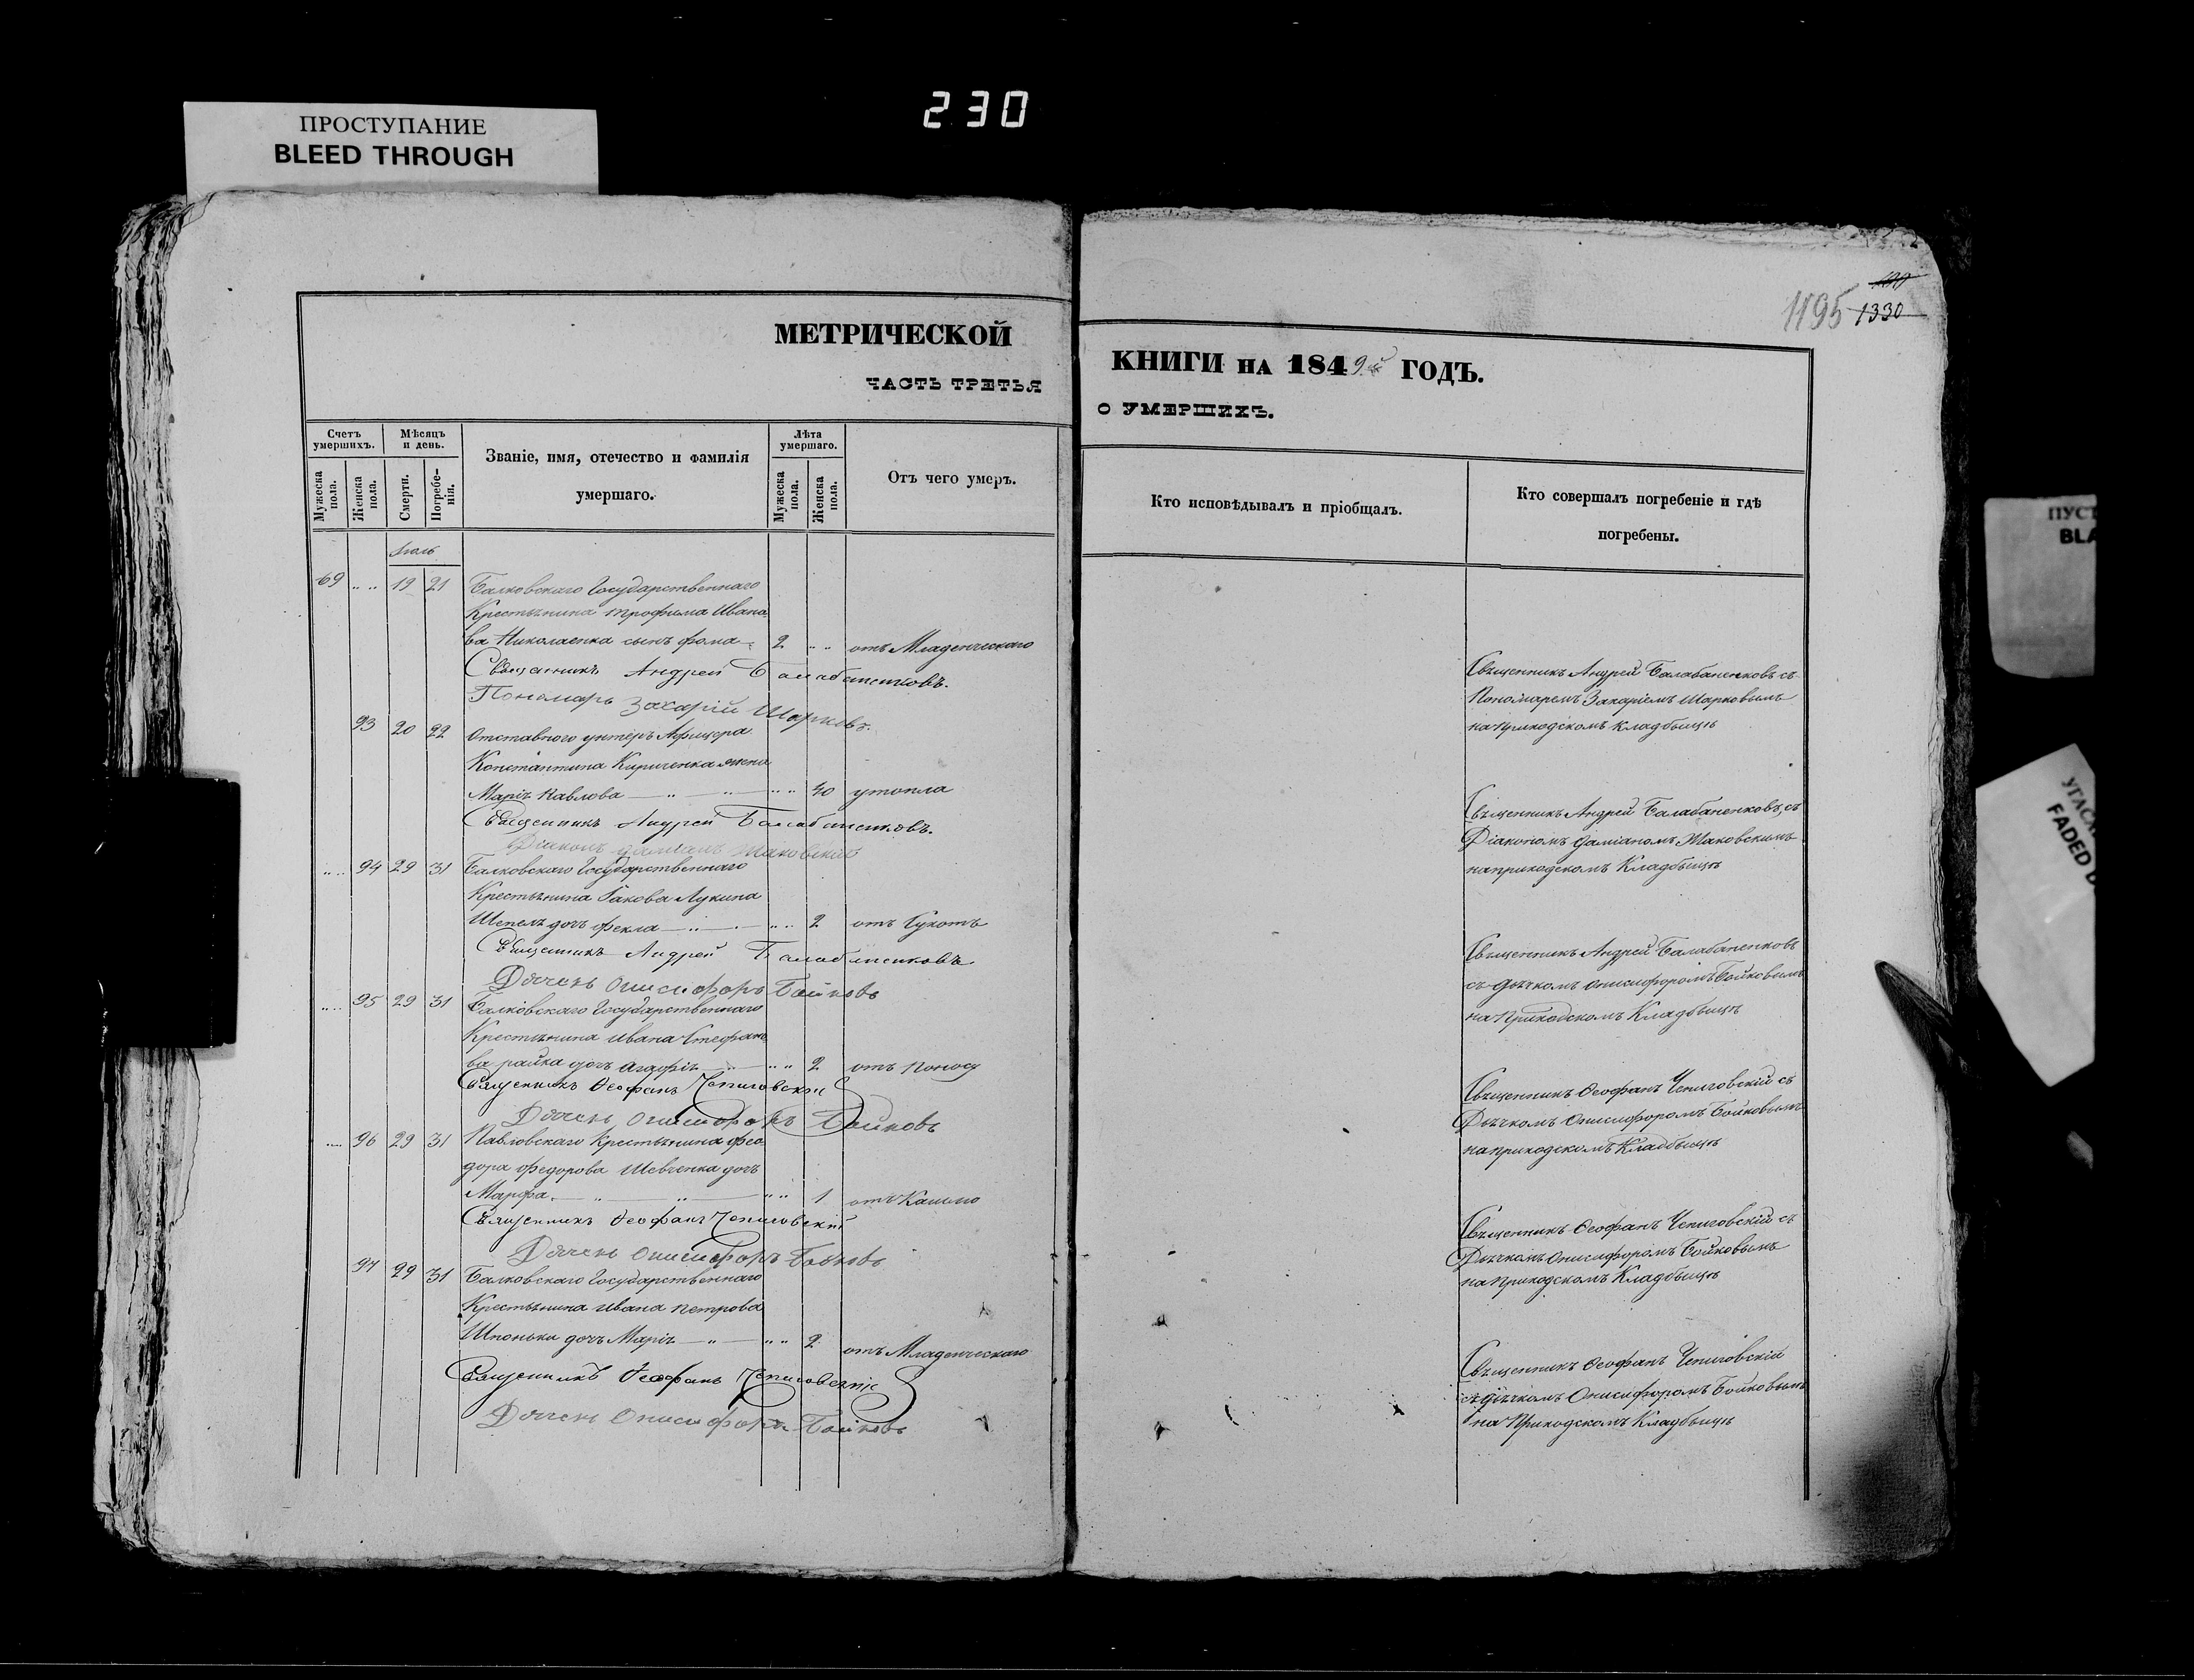 230
ПРОСТУПАНИЕ
BLEED THROUGH
1195 1330
МЕТРИЧЕСКОЙ
ЧАСТЬ ТРЕТЬЯ
КНИГИ НА 1849й ГОДЪ.
О УМЕРШИХЪ.
Счетъ умершихъ.
Мужеска пола.
Женска пола.
Мѣсяцъ и день.
Смерти.
Погребе-нія.
Званіе, имя, отечество и фамилія
умершаго.
Лѣта умершаго.
Мужеска пола.
Женска пола.
Отъ чего умеръ.
Кто исповѣдывалъ и пріобщалъ.
Кто совершалъ погребеніе и гдѣ
погребены.
Іюль
69 19 21 Балковскаго Государственнаго
Крестьянина Трофима Ивано
ва Николаенка сынъ Фома 2 отъ Младенческаго
Священникъ Андрей Балабаненковъ.
Пономарь Захарій Шарковъ.
Священникъ Андрей Балабаненковъ съ
Пономаремъ Захаріемъ Шарковымъ
на приходскомъ кладбыщѣ
93 20 22 Отставного унтеръ Афицера
Константина Кириченка жена
Марія Павлова 40 утопла
Священникъ Андрей Балабаненковъ.
Діаконъ Даміанъ Маковскій
Священникъ Андрей Балабаненковъ съ
Діакономъ Даміаномъ Маковскимъ
на приходскомъ Кладбыщѣ
94 29 31 Балковскаго Государственнаго
Крестьянина Іакова Лукина
Шепель дочь Фекла 2 отъ Сухотъ
Священникъ Андрей Балабаненковъ
Дячекъ Онисифоръ Бойковъ
Священникъ Андрей Балабаненковъ
съ Дьячкомъ Онисифоромъ Бойковымъ
на Приходскомъ Кладбыщѣ
95 29 31 Балковскаго Государственнаго
Крестьянина Ивана Стефано
ва райка дочь Агафія 2 отъ Поносу
Священникъ Ѳеофанъ Чепиговскій
Дячекъ Онисифоръ Бойковъ
Священникъ Ѳеофанъ Чепиговскій съ
Дьячкомъ Онисифоромъ Бойковымъ
на приходскомъ Кладбыщѣ
96 29 31 Павловскаго Крестьянина Фео
дора Федорова Шевченка дочь
Марфа 1 отъ Кашлю
Священникъ Ѳеофанъ Чепиговскій
Дячекъ Онисифоръ Бойковъ
Священникъ Ѳеофанъ Чепиговскій съ
Дьячкомъ Онисифоромъ Бойковымъ
на Приходскомъ Кладбыщѣ
97 29 31 Балковскаго Государственнаго
Крестьянина Ивана Петрова
Шпоньки дочь Марія 2 отъ Младенческаго
Священникъ Ѳеофанъ Чепиговскій
Дячекъ Онисифоръ Бойковъ
Священникъ Ѳеофанъ Чепиговскій
съ дьячкомъ Онисифоромъ Бойковымъ
на Приходскомъ Кладбыщѣ
ПУСТ
BLA
FADED